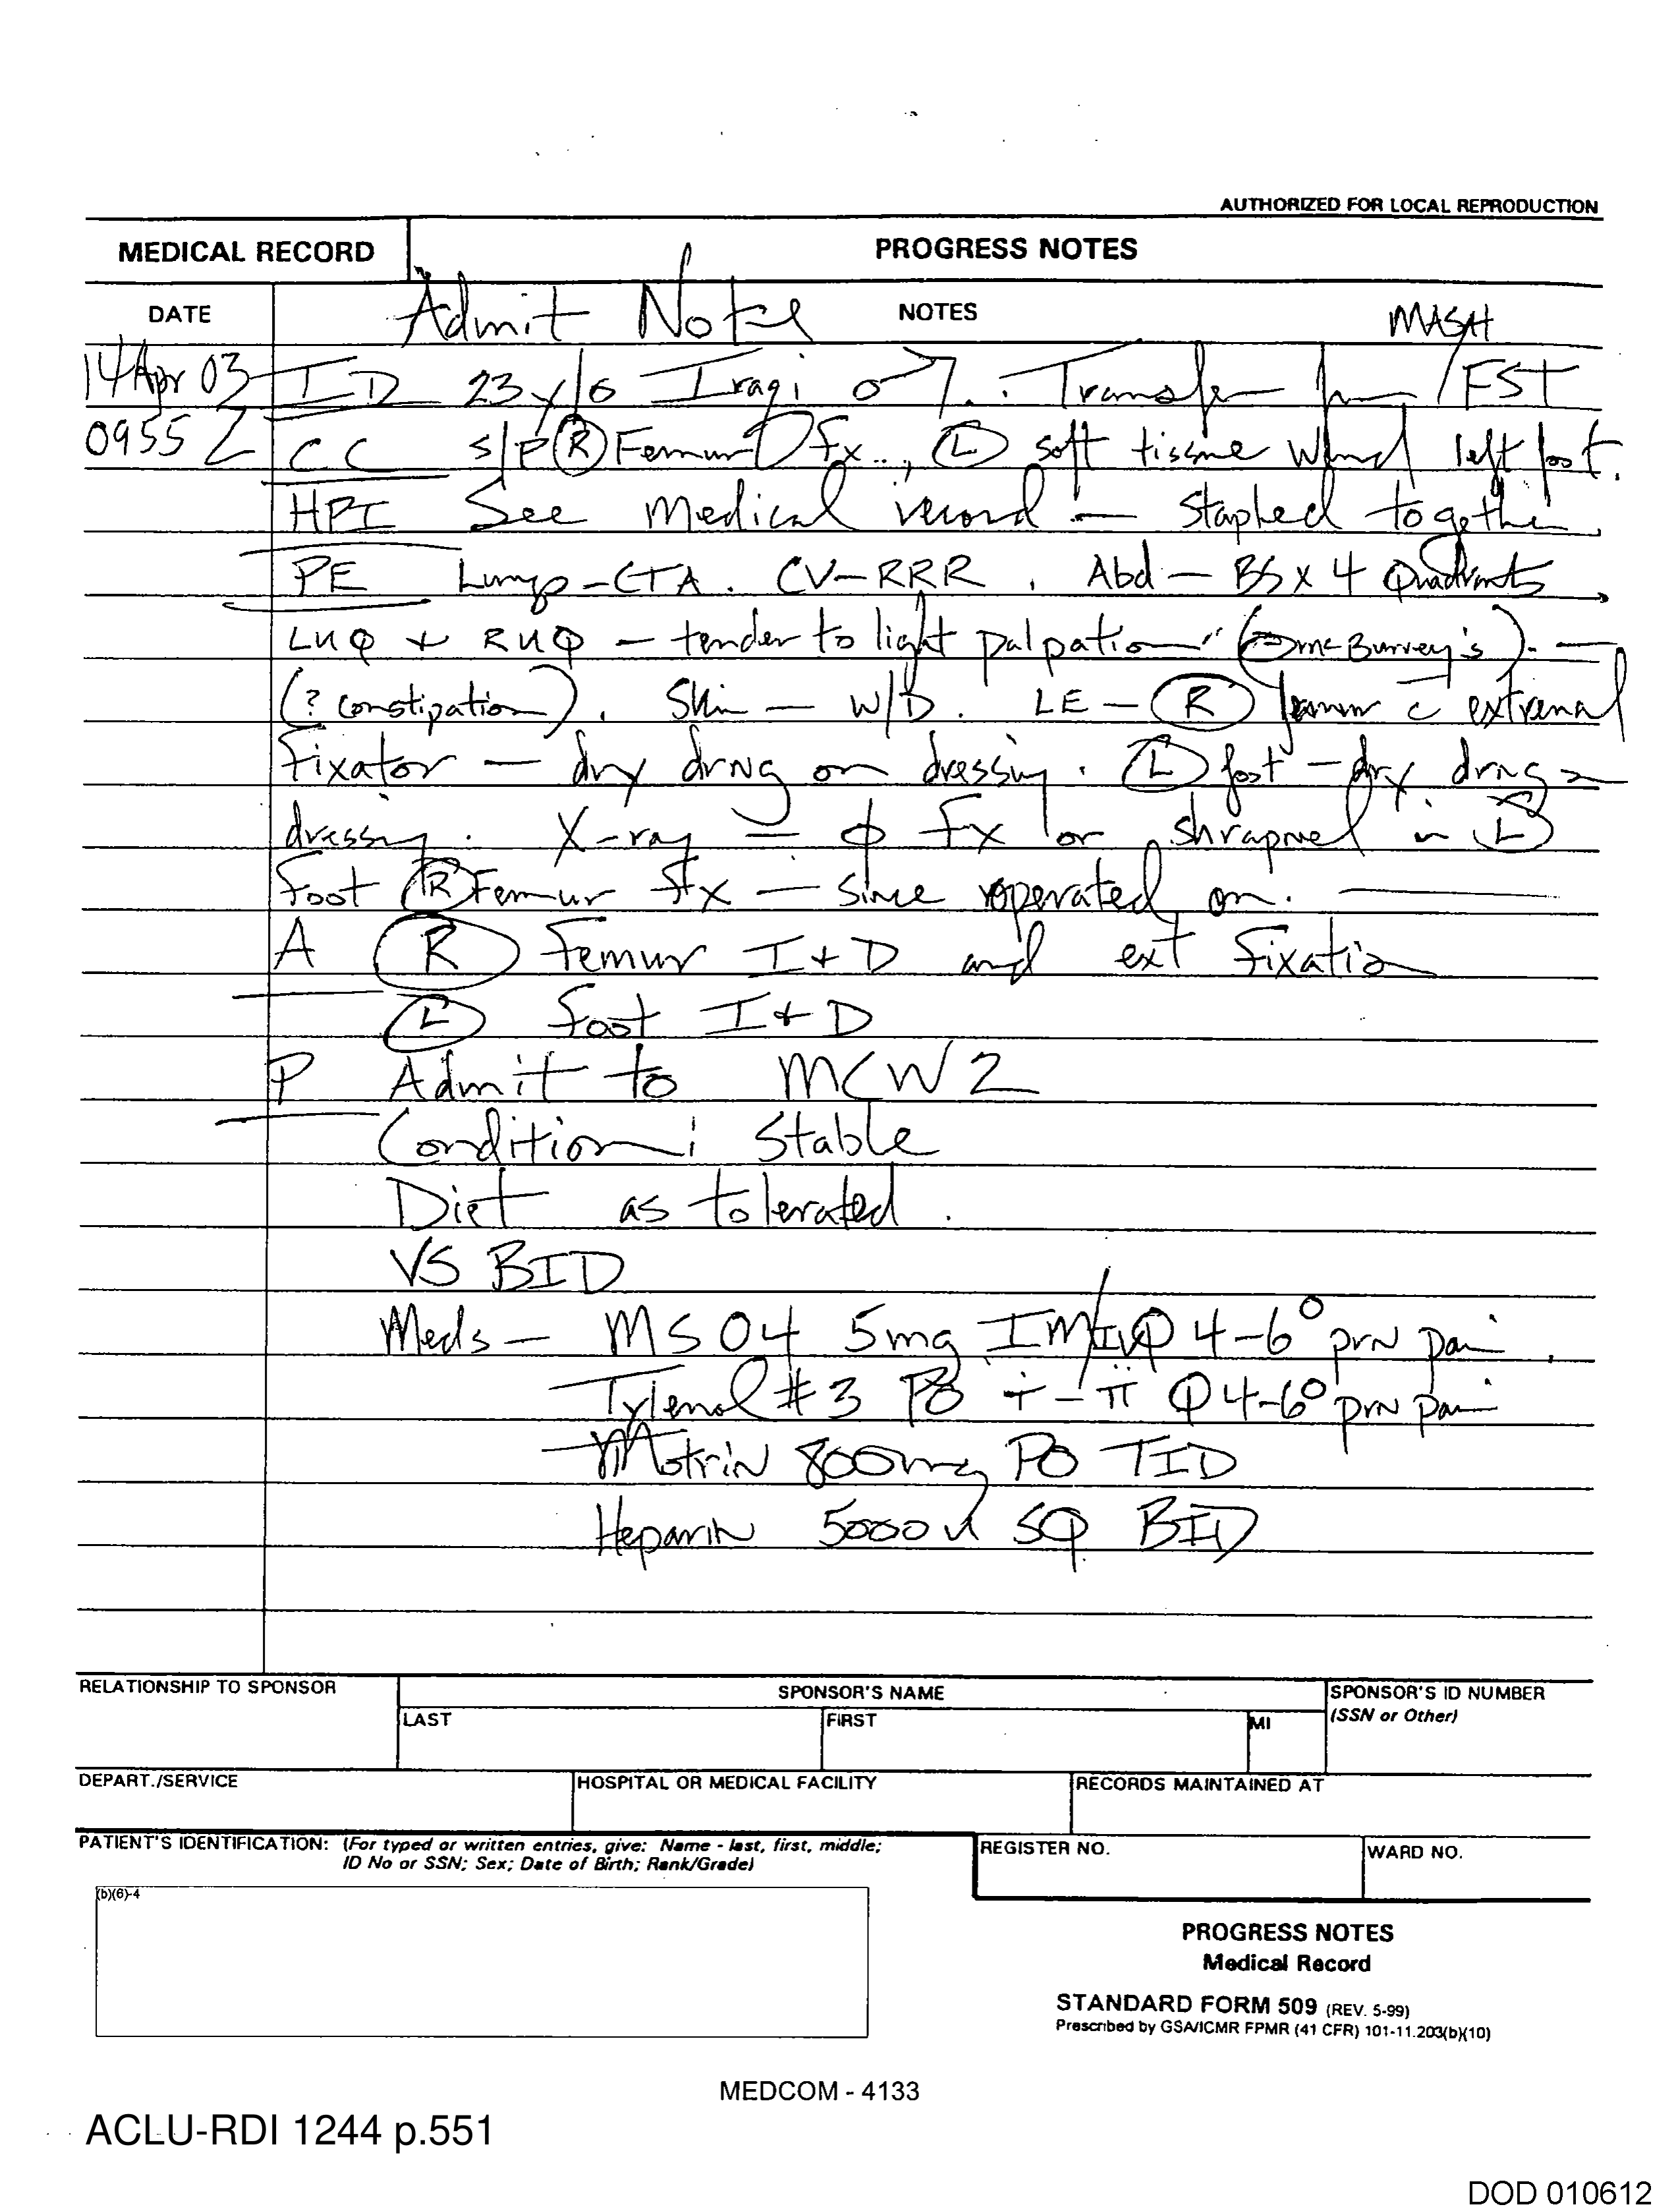 AUTHORIZED FOR LOCAL REPRODUCTION
MEDICAL RECORD PROGRESS NOTES
DATE Admit Note NOTES MASH
14 Apr 03 ID 23 y/o Iraqi ♂. Transfer from /FST
0955 Z CC s/p Ⓡ Femur fx., Ⓛ soft tissue wound left foot.
HPI See medical record — stapled together.
PE Lungs - CTA. CV - RRR. Abd — BS x 4 Quadrants
LUQ + RUQ — tender to light palpation (⊖ McBurney's). —
(? constipation). Skin — W/D. LE - Ⓡ femur c̄ external
fixator — dry drng on dressing. Ⓛ foot - dry drng on
dressing. X-ray — ϕ fx or shrapnel in Ⓛ
foot Ⓡ Femur fx — since operated on. —
A Ⓡ femur I + D and ext fixation
Ⓛ foot I + D
P Admit to MCW2
Condition: Stable
Diet as tolerated.
VS BID
Meds — MSO4 5mg IM/IV Q 4-6° prn pain.
Tylenol #3 PO i - ii Q 4-6° prn pain
Motrin 800mg PO TID
Heparin 5000 u SQ BID
RELATIONSHIP TO SPONSOR SPONSOR'S NAME SPONSOR'S ID NUMBER
LAST FIRST MI (SSN or Other)
DEPART./SERVICE HOSPITAL OR MEDICAL FACILITY RECORDS MAINTAINED AT
PATIENT'S IDENTIFICATION: (For typed or written entries, give: Name - last, first, middle; REGISTER NO. WARD NO.
ID No or SSN; Sex; Date of Birth; Rank/Grade)
(b)(6)-4
PROGRESS NOTES
Medical Record
STANDARD FORM 509 (REV. 5-99)
Prescribed by GSA/ICMR FPMR (41 CFR) 101-11.203(b)(10)
MEDCOM - 4133
ACLU-RDI 1244 p.551
DOD 010612